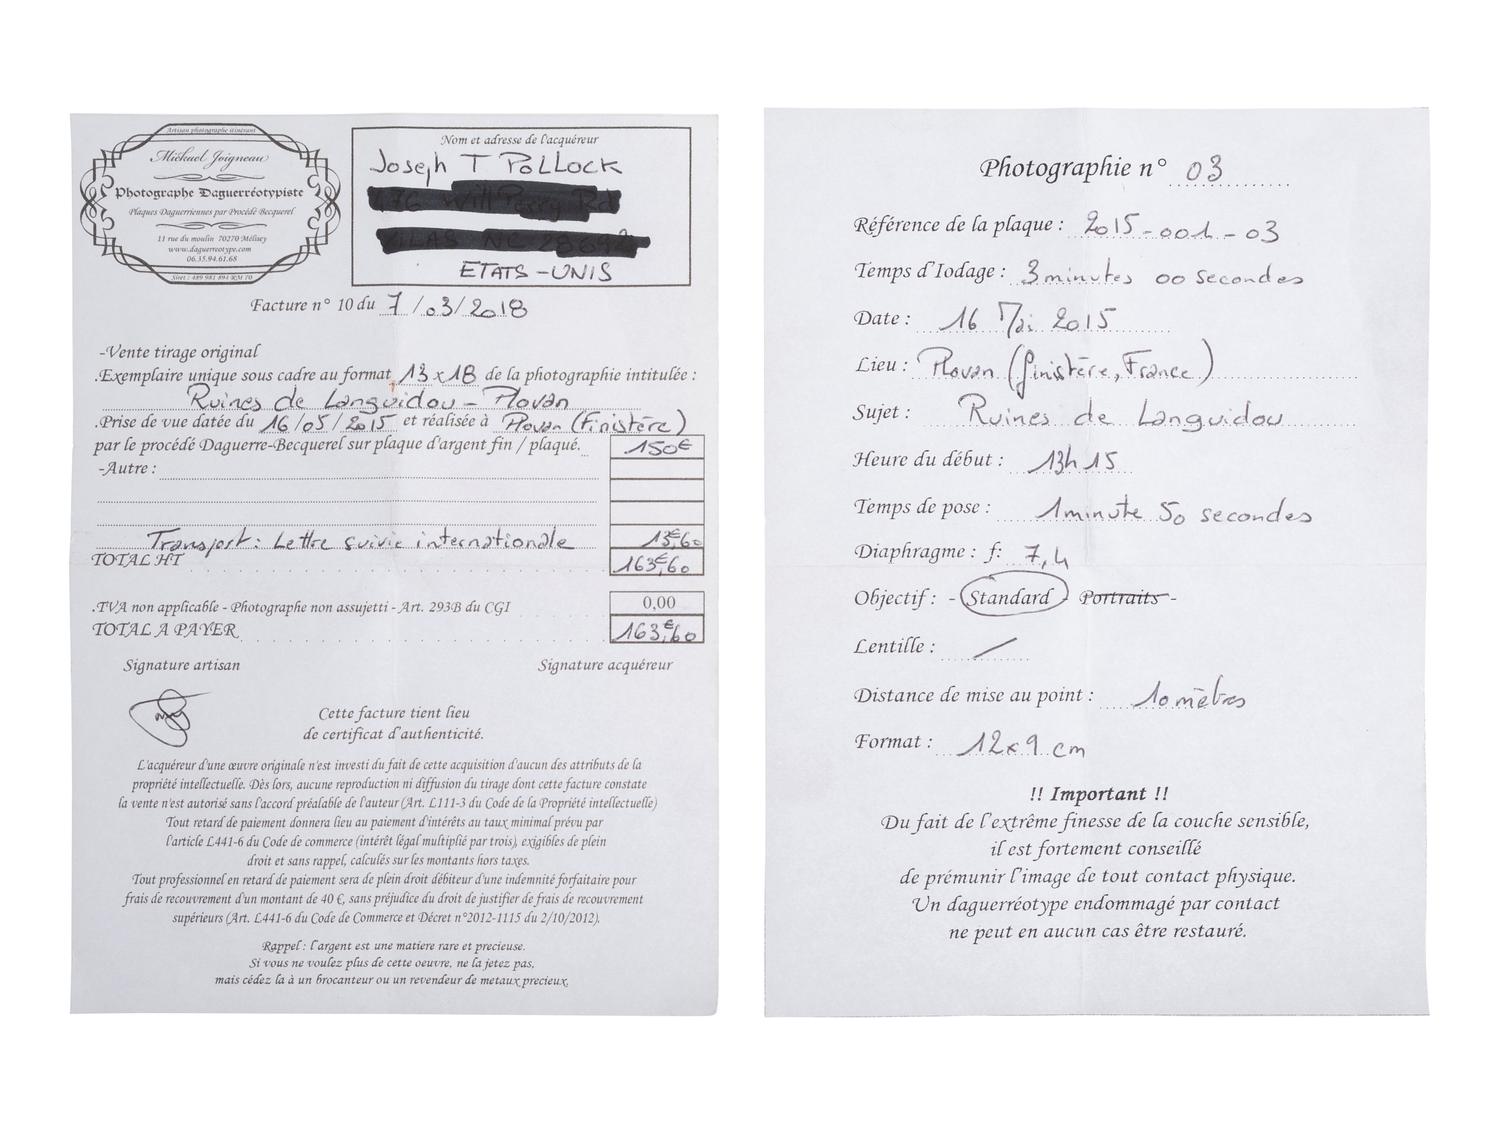 Artisan photographe itinérant
Mickael Joigneau
Photographe Daguerréotypiste
Plaques Daguerriennes par Procédé Becquerel
11 rue du moulin 70270 Mélisey
www.daguerreotype.com
06.35.94.61.68
Siret : 489 981 894 RM 70
Nom et adresse de l'acquéreur
Joseph T POLLOCK
ETATS-UNIS
Facture n° 10 du 7/03/2018
-Vente tirage original
.Exemplaire unique sous cadre au format 13x18 de la photographie intitulée :
Ruines de Languidou - Plovan
.Prise de vue datée du 16/05/2015 et réalisée à Plovan (Finistère)
par le procédé Daguerre-Becquerel sur plaque d'argent fin / plaqué. 150€
-Autre :
Transport : Lettre suivie internationale 13€60
TOTAL HT 163€60
.TVA non applicable - Photographe non assujetti - Art. 293B du CGI 0,00
TOTAL A PAYER 163€60
Signature artisan Signature acquéreur
Cette facture tient lieu
de certificat d'authenticité.
L'acquéreur d'une œuvre originale n'est investi du fait de cette acquisition d'aucun des attributs de la
propriété intellectuelle. Dès lors, aucune reproduction ni diffusion du tirage dont cette facture constate
la vente n'est autorisé sans l'accord préalable de l'auteur (Art. L111-3 du Code de la Propriété intellectuelle)
Tout retard de paiement donnera lieu au paiement d'intérêts au taux minimal prévu par
l'article L441-6 du Code de commerce (intérêt légal multiplié par trois), exigibles de plein
droit et sans rappel, calculés sur les montants hors taxes.
Tout professionnel en retard de paiement sera de plein droit débiteur d'une indemnité forfaitaire pour
frais de recouvrement d'un montant de 40 €, sans préjudice du droit de justifier de frais de recouvrement
supérieurs (Art. L441-6 du Code de Commerce et Décret n°2012-1115 du 2/10/2012).
Rappel : l'argent est une matiere rare et precieuse.
Si vous ne voulez plus de cette oeuvre, ne la jetez pas,
mais cédez la à un brocanteur ou un revendeur de metaux precieux.
Photographie n° 03
Référence de la plaque : 2015-001-03
Temps d'Iodage : 3 minutes 00 secondes
Date : 16 Mai 2015
Lieu : Plovan (finistère, France)
Sujet : Ruines de Languidou
Heure du début : 13h15
Temps de pose : 1 minute 50 secondes
Diaphragme : f: 7,4
Objectif : - Standard Portraits -
Lentille : /
Distance de mise au point : 10 mètres
Format : 12x9 cm
!! Important !!
Du fait de l'extrême finesse de la couche sensible,
il est fortement conseillé
de prémunir l'image de tout contact physique.
Un daguerréotype endommagé par contact
ne peut en aucun cas être restauré.